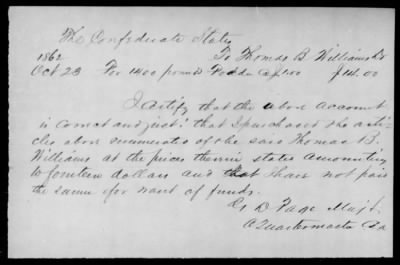 The Confederate States
1862 To Thomas B. Williams Dr
Oct 23 For 1400 pounds Fodder @ $1.00 $14.00
I certify that the above account
is correct and just; that I purchased the arti-
cles above enumerated of the said Thomas B.
Williams at the prices therein stated amounting
to fourteen dollars and that I have not paid
the same for want of funds.
G D Page Maj &
A Quartermaster